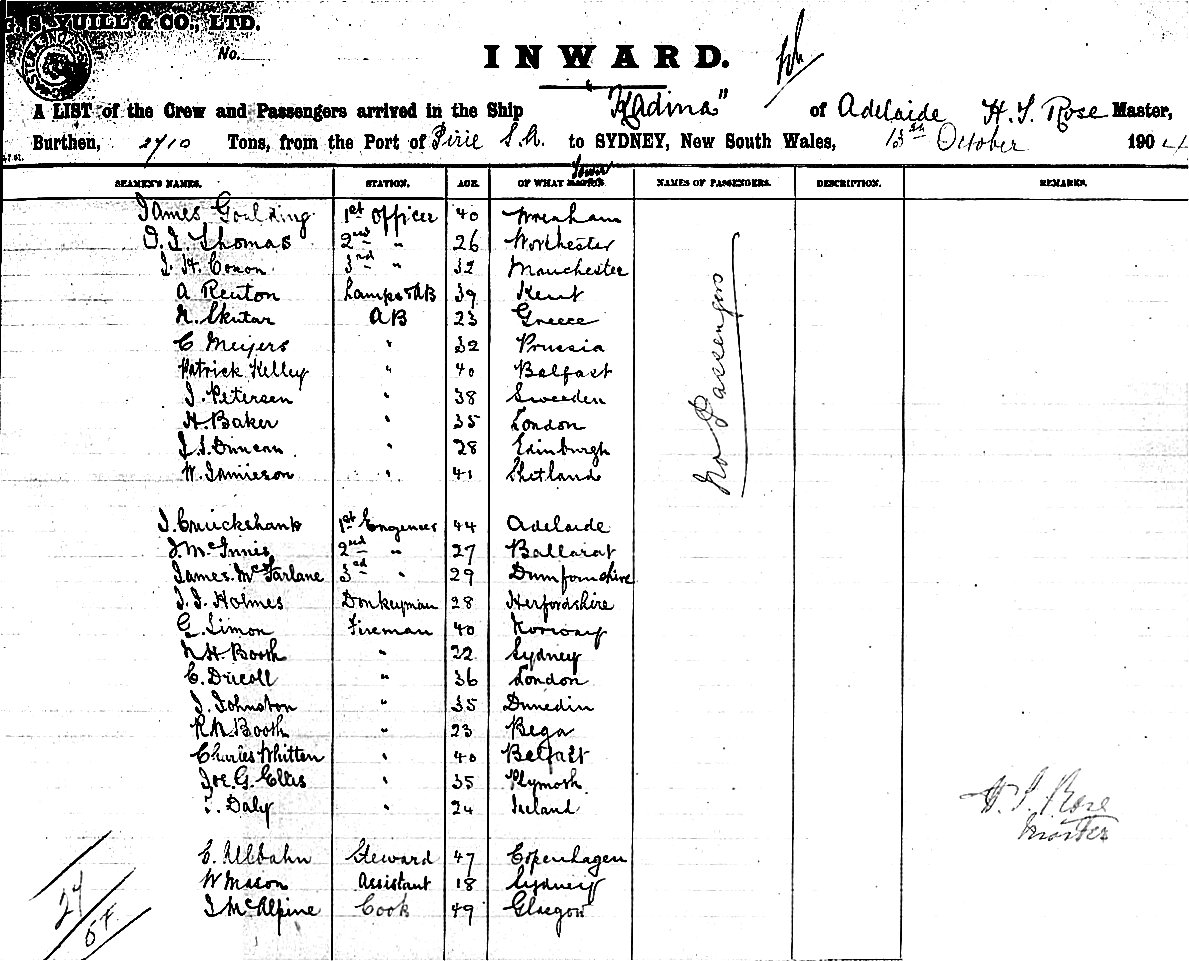 G. S. YUILL & CO., LTD.
No.
INWARD.
A LIST of the Crew and Passengers arrived in the Ship "Kadina" of Adelaide H. J. Rose Master,
Burthen, 2710 Tons, from the Port of Pirie S.A. to SYDNEY, New South Wales, 13th October 1904
SEAMEN'S NAMES. STATION. AGE. OF WHAT Town NAMES OF PASSENGERS. DESCRIPTION. REMARKS.
James Goulding 1st Officer 40 Wrexham
Thomas 2nd " 26 Worchester
3rd " 32 Manchester
A Renton Lamps & AB 39 Kent
N. Skutar AB 23 Greece
C Meijers " 32 Prussia
Patrick Kelley " 40 Belfast
J. Petersen " 38 Sweeden
H. Baker " 35 London
J. J. Duncan " 28 Edinburgh
W. Jamieson " 41 Shetland
No Passengers
J. Cruickshank 1st Engeneer 44 Adelaide
J. McInnis 2nd " 27 Ballarat
James McFarlane 3rd " 29
J. J. Holmes Donkeyman 28 Herfordshire
G. Simon Fireman 40 Norway
N. H. Booth " 22 Sydney
C. Dricoll " 36 London
J. Johnston " 35 Dunedin
R. N. Booth " 23 Bega
Charles Whitten " 40 Belfast
Joe. G. Ellis " 35 Plymoth
Daly " 24 Ireland
H. J. Rose
Master
C. Ullbahn Steward 47 Copenhagen
W Mason Assistant 18 Sydney
J McAlpine Cook 49 Glasgow
27